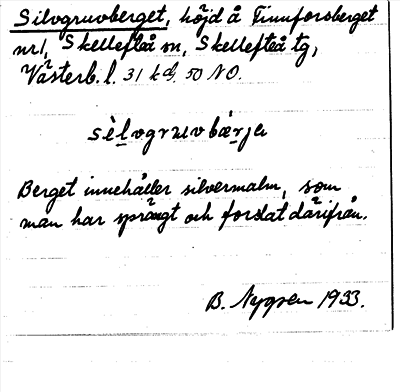 Silvgruvberget, höjd å Finnforsberget
nr1, Skellefteå sn, Skellefteå tg,
Västerb. l. 31 k d. 50 NO.
sèlvgruvbárja
Berget innehåller silvermalm, som
man har sprängt och forslat därifrån.
B. Nygren 1933.